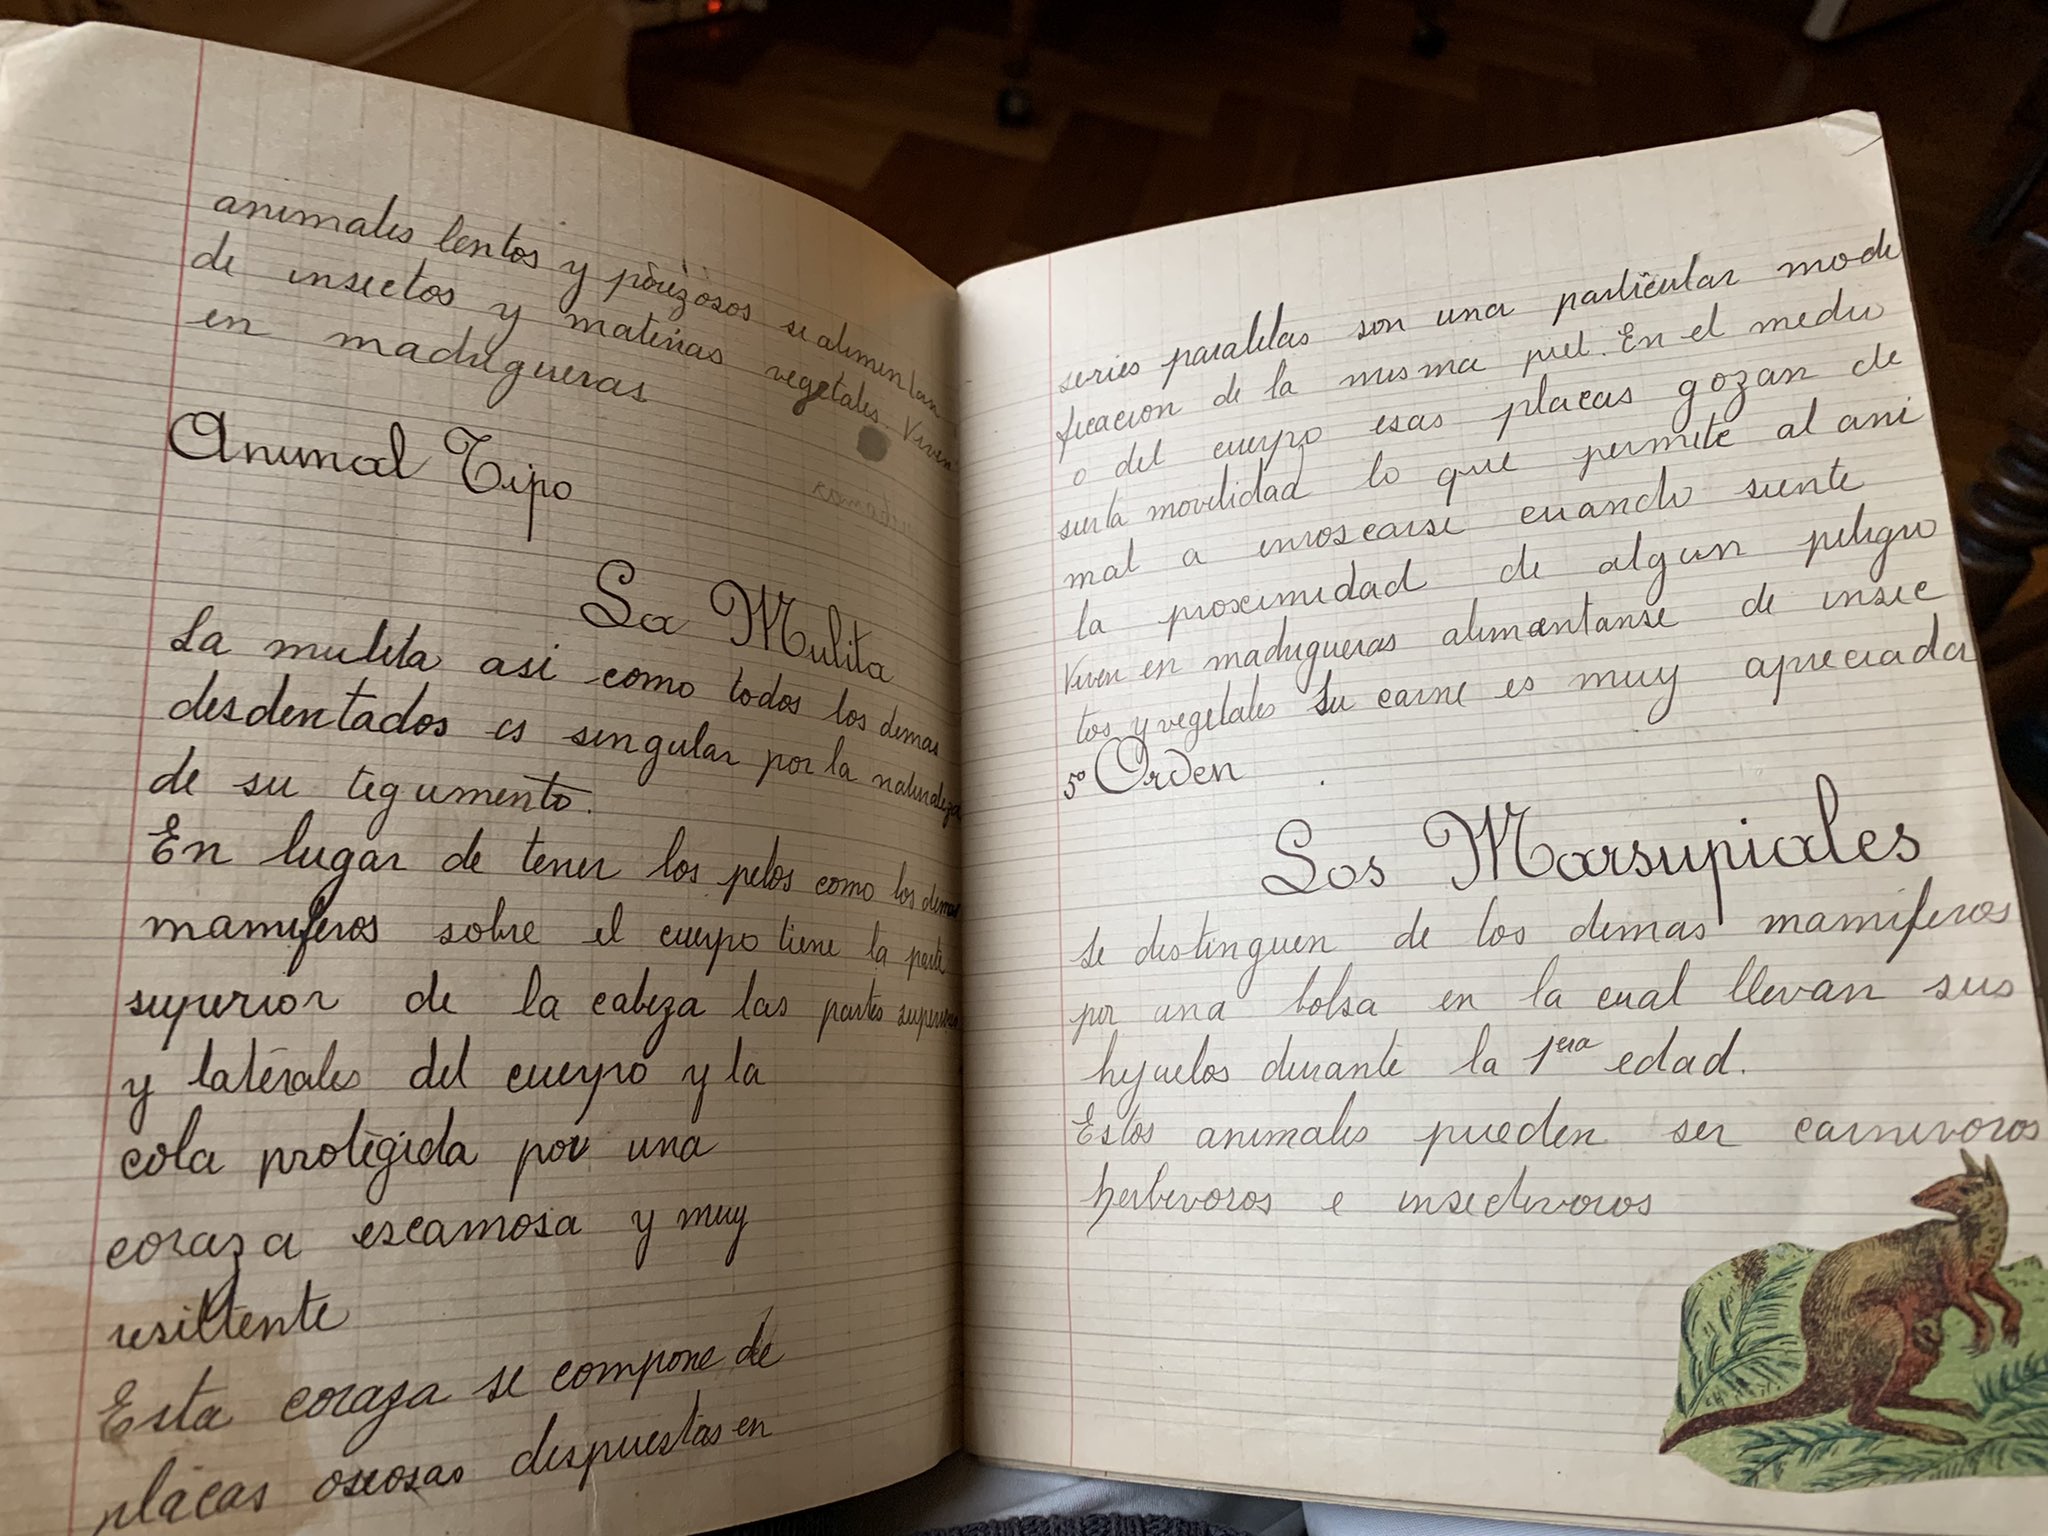 animales lentos y perezosos se alimentan
de insectos y materias vegetales. Viven
en madrigueras
Animal Tipo
La Mulita
La mulita asi como todos los demas
desdentados es singular por la naturaleza
de su tegumento.
En lugar de tener los pelos como los demas
mamiferos sobre el cuerpo tiene la parte
superior de la cabeza las partes superiores
y laterales del cuerpo y la
cola protegida por una
coraza escamosa y muy
resistente
Esta coraza se compone de
placas oseosas despuestas en
series paralelas son una particular modi
ficacion de la misma piel. En el medi
o del cuerpo esas placas gozan de
sierta movilidad lo que permite al ani
mal a enroscarse cuando siente
la proximidad de algun peligro
Viven en madrigueras alimentanse de insec
tos y vegetales Su carne es muy apreciada
5º Orden
Los Marsupiales
Se distinguen de los demas mamiferos
por una bolsa en la cual llevan sus
hyuelos durante la 1era edad.
Estos animales pueden ser carnivoros
herbivoros e insectivoros